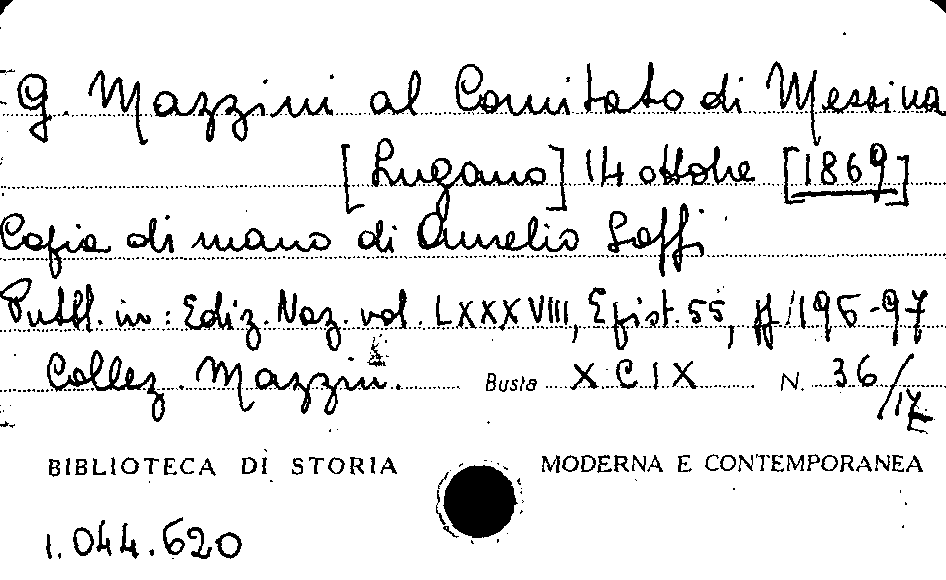 G. Mazzini al Comitato di Messina
[Lugano] 14 ottobre [1869]
Copia di mano di Aurelio Saffi
Pubbl. in: Ediz. Naz. vol. LXXXVIII, Epist. 55, pp. 196-97
Collez. Mazzini. Busta XCIX N. 36/17
BIBLIOTECA DI STORIA MODERNA E CONTEMPORANEA
1.044.620